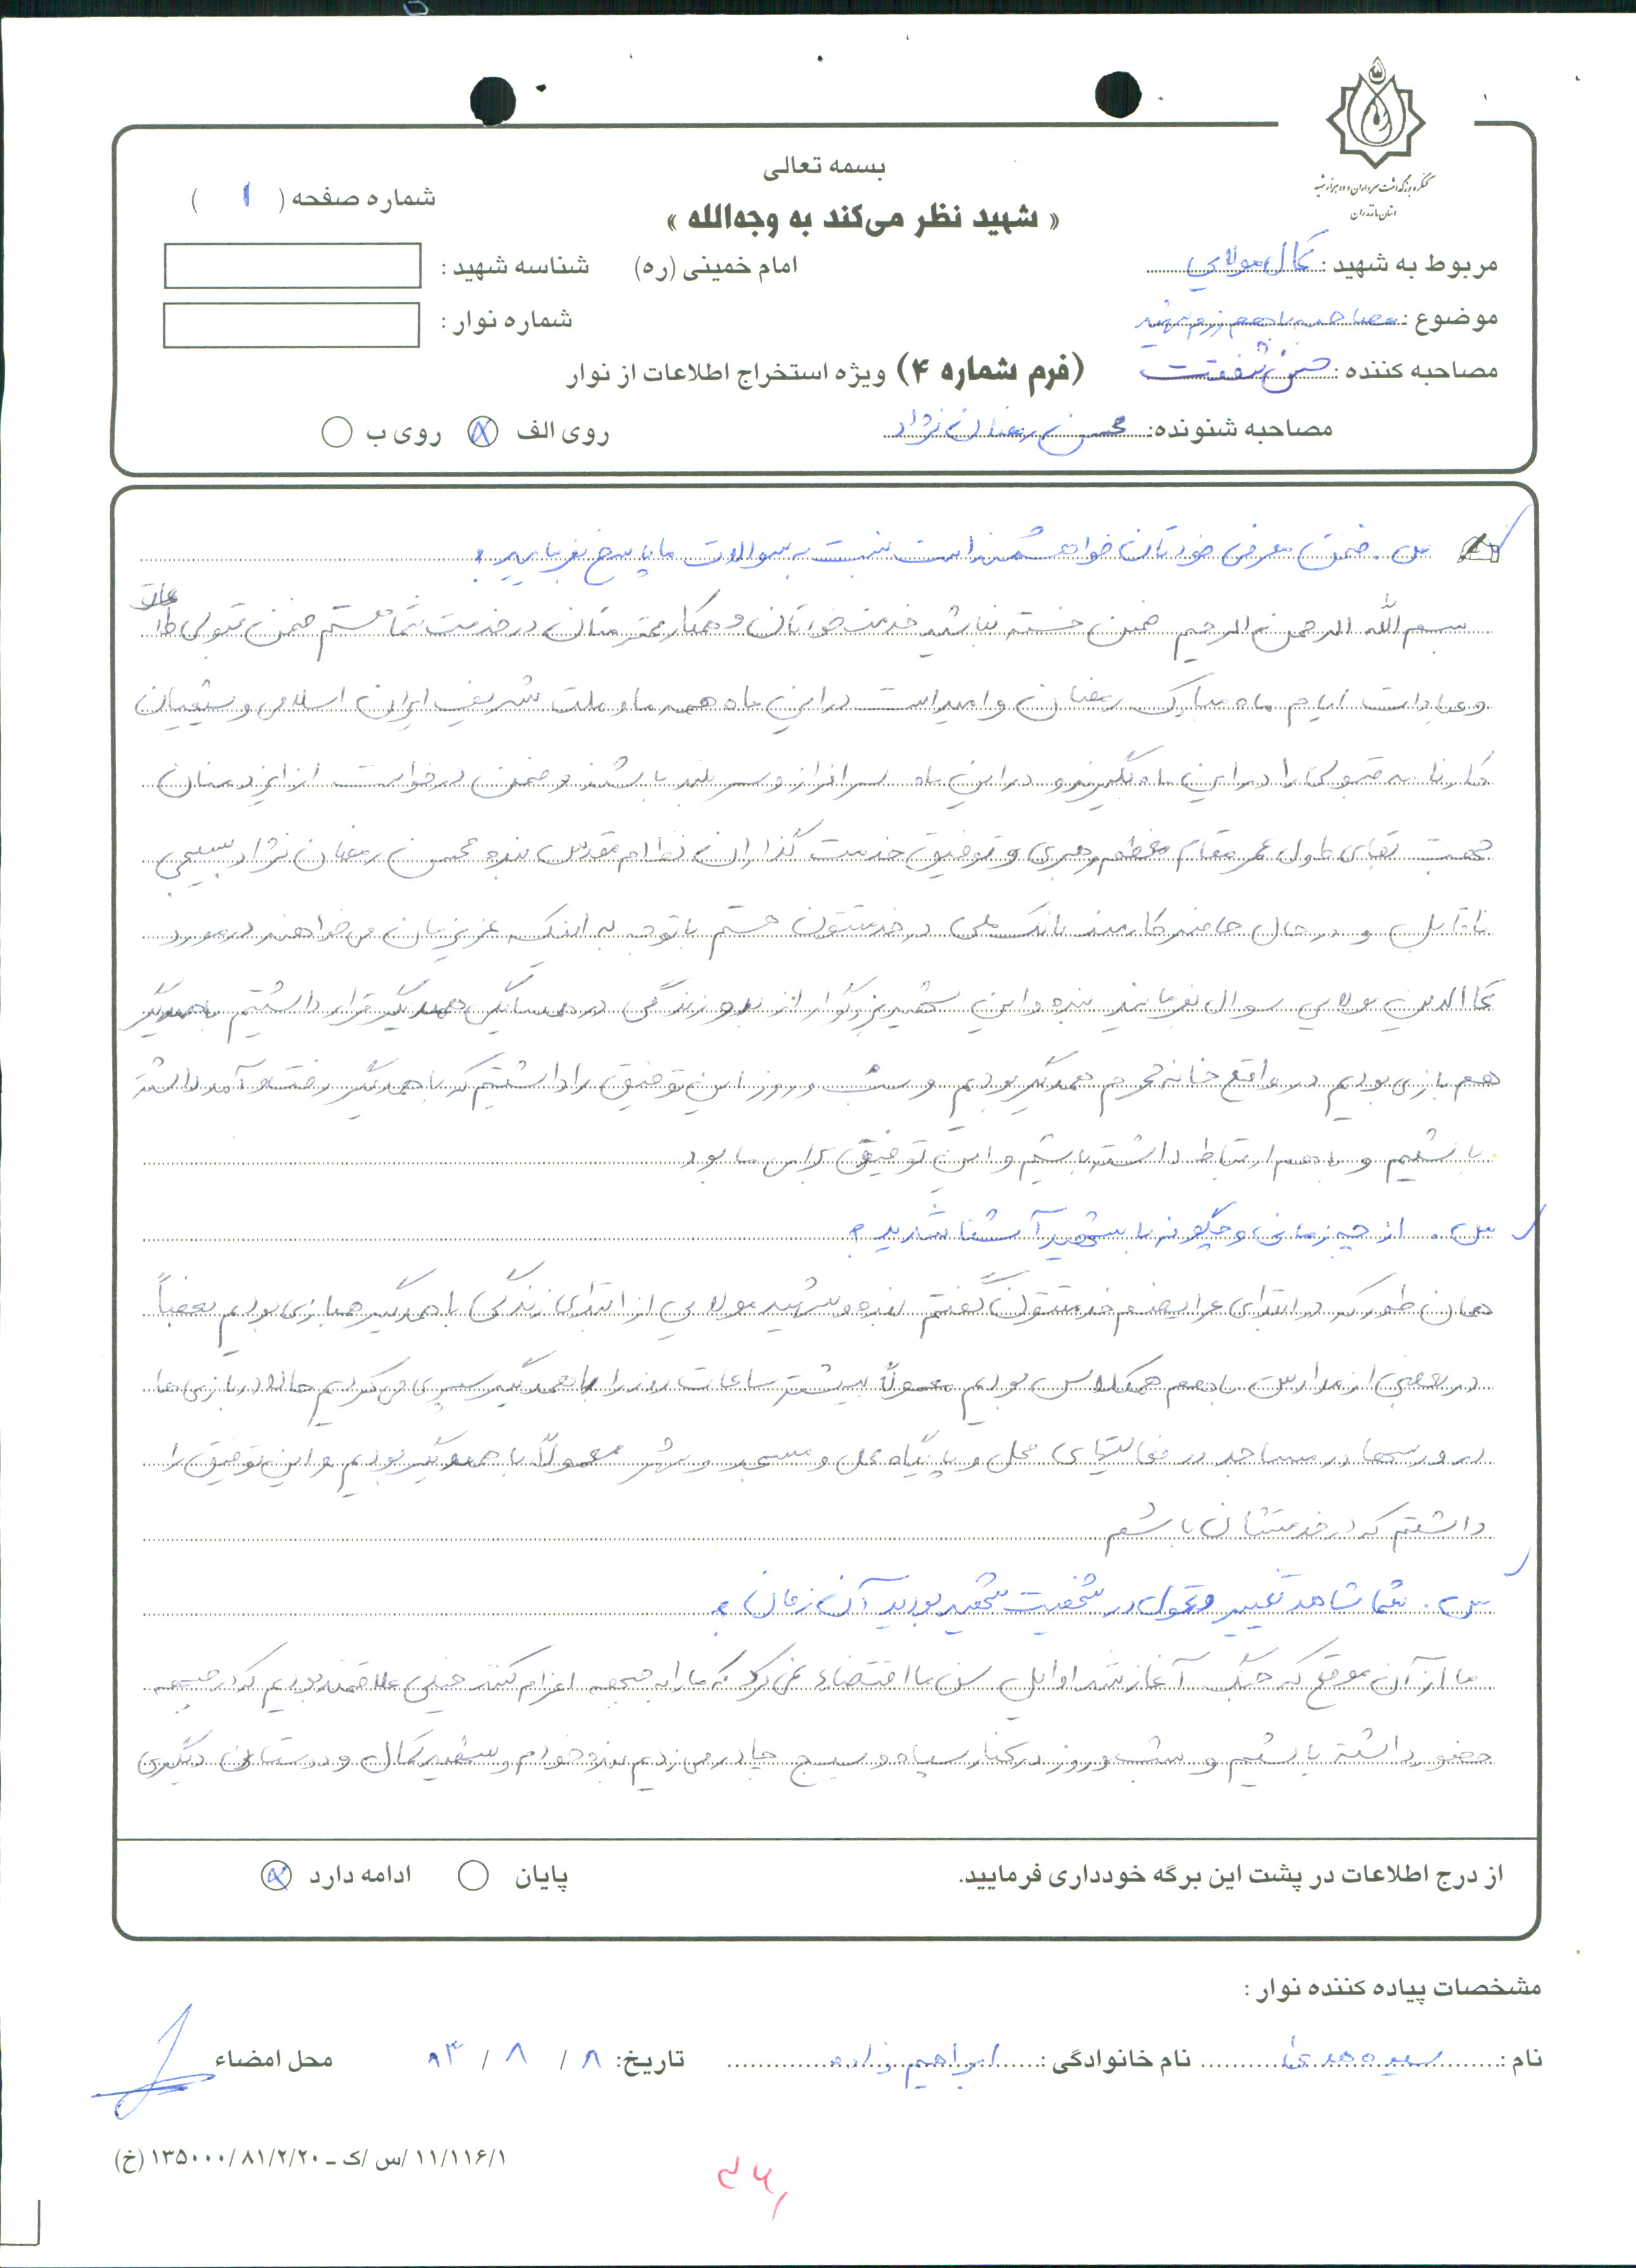 کنگره بزرگداشت سرداران و ده هزار شهید
استان مازندران
بسمه تعالی
« شهید نظر می‌کند به وجه‌الله »
شماره صفحه ( ۱ )
مربوط به شهید : کمال مولایی
امام خمینی (ره)
شناسه شهید :
موضوع : مصاحبه با همرزم شهید
شماره نوار :
مصاحبه کننده : حسن شفقت
(فرم شماره ۴) ویژه استخراج اطلاعات از نوار
مصاحبه شنونده: محسن رمضان نژاد
روی الف روی ب
س . ضمن معرفی خودتان خواهشمند است نسبت به سوالات ما پاسخ بفرمایید ؟
بسم الله الرحمن الرحیم ضمن خسته نباشید خدمت خودتان و همکار محترمتان در خدمت شما هستم ضمن قبولی طاعات
و عبادات ایام ماه مبارک رمضان و امید است در این ماه همه ما و ملت شریف ایران اسلامی و شیعیان
کارنامه قبولی را در این ماه بگیرند و در این ماه سرافراز و سربلند باشند و ضمن درخواست از ایزد منان
جهت بقای طول عمر مقام معظم رهبری و توفیق خدمت گذاران نظام مقدس بنده محسن رمضان نژاد بسیجی
ناقابل و در حال حاضر کارمند بانک ملی در خدمتتون هستم با توجه به اینکه عزیزمان می خواهند در مورد
کمال الدین مولایی سوال بفرمایند بنده و این شهید بزرگوار از بدو زندگی در همسایگی همدیگر قرار داشتیم با همدیگر
هم بازی بودیم در واقع خانه محرم همدیگر بودیم و شب و روز این توفیق را داشتیم که با همدیگر رفت و آمد داشته
باشیم و با هم ارتباط داشته باشیم و این توفیق برای ما بود
س . از چه زمانی و چگونه با شهید آشنا شدید ؟
همان طور که در ابتدای عرایضم خدمتتون گفتم بنده و شهید مولایی از ابتدای زندگی با همدیگر همبازی بودیم بعضاً
در بعضی از مدارس با هم همکلاس بودیم معمولاً بیشتر ساعات روز را با همدیگر سپری می کردیم حالا در بازی ها
در ورسها در مساجد در فعالیتهای محل و پایگاه محل و مسجد و شهر معمولاً با همدیگر بودیم و این توفیق را
داشتم که در خدمتشان باشم
س . شما شاهد تغییر و تحول در شخصیت شهید بودید آن زمان ؟
ما از آن موقع که جنگ آغاز شد اوایل سن ما اقتضاء نمی کرد که ما را به جبهه اعزام کنند خیلی علاقمند بودیم که در جبهه
حضور داشته باشیم و شب و روز در کنار سپاه و بسیج چادر می زدیم بنده خودم و شهید کمال و دوستان دیگری
از درج اطلاعات در پشت این برگه خودداری فرمایید.
پایان ادامه دارد
مشخصات پیاده کننده نوار :
نام : سیده هدی نام خانوادگی : ابراهیم زاده تاریخ: ۸ / ۸ / ۸۳ محل امضاء
۱۱/۱۱۶/۱ /س /ک ـ ۸۱/۲/۲۰/ ۱۳۵۰۰۰ (خ)